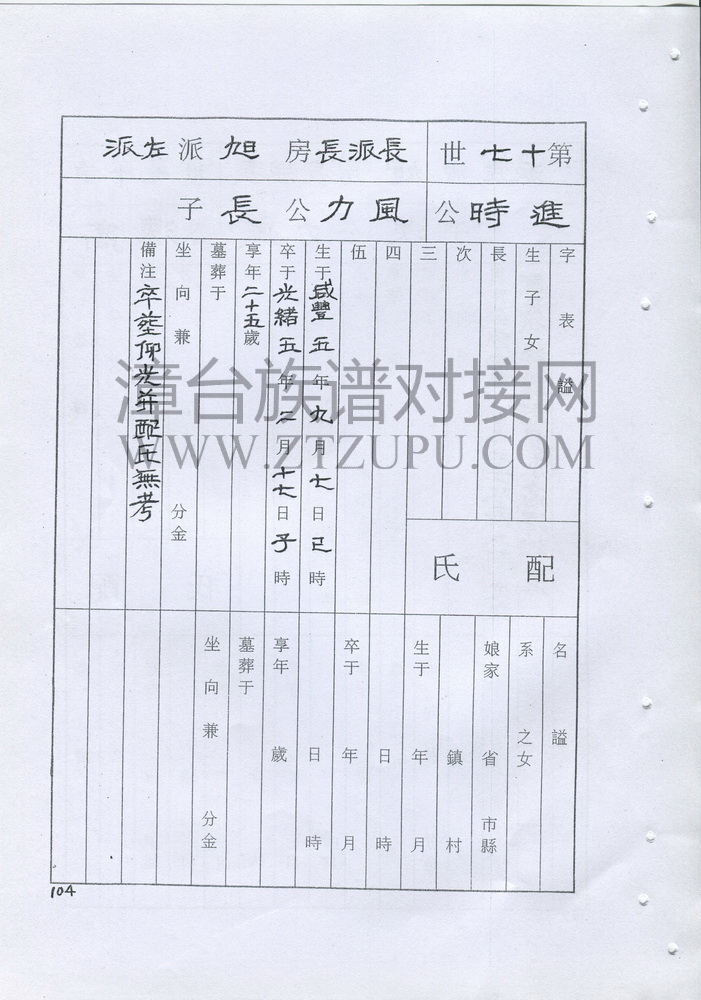 第十七世
長派長房 旭派左派
進時公
風力公長子
字表諡
生子女
長
次
三
四
伍
生于咸豐五年九月七日巳時
卒于光緒五年二月十七日子時
享年二十五歲
墓葬于
坐向兼 分金
備注 卒塟仰光并配氏無考
配氏
名諡
系之女
娘家省市縣
鎮村
生于年月
日時
卒于年月
日時
享年歲
墓葬于
坐向兼 分金
漳台族谱对接网
WWW.ZTZUPU.COM
104